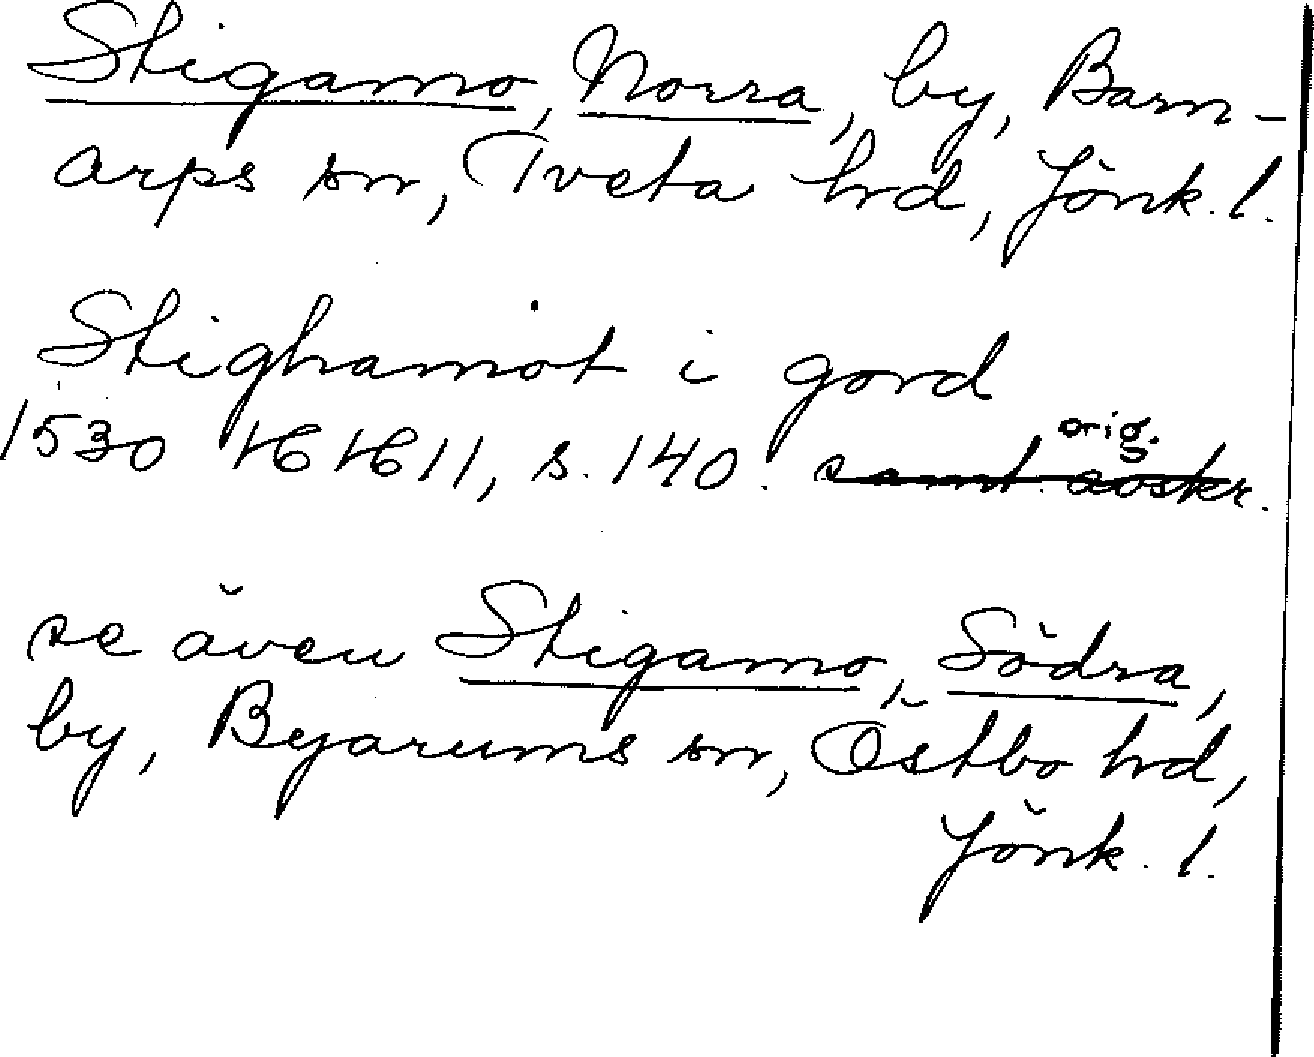 Stigamo, Norra, by, Barn-
arps sn, Tveta hrd, Jönk. l.
Stighamot i gord
1530 HH 11, s. 140. orig.
samt. avskr.
se även Stigamo, Södra,
by, Byarums sn, Östbo hrd,
Jönk. l.